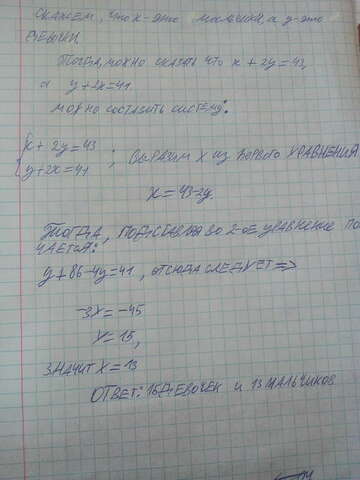 скажем, что x - это мальчики, а y - это
девочки
Тогда, можно сказать что x + 2y = 43,
а y + 2x = 41.
можно составить систему:
x + 2y = 43
y + 2x = 41 ; выразим x из первого уравнения
x = 43-2y.
Тогда, подставляя во 2-ое уравнение по
чается:
y + 86 - 4y = 41, отсюда следует =>
-3x = -45
y = 15,
значит x = 13
Ответ: 15 девочек и 13 мальчиков